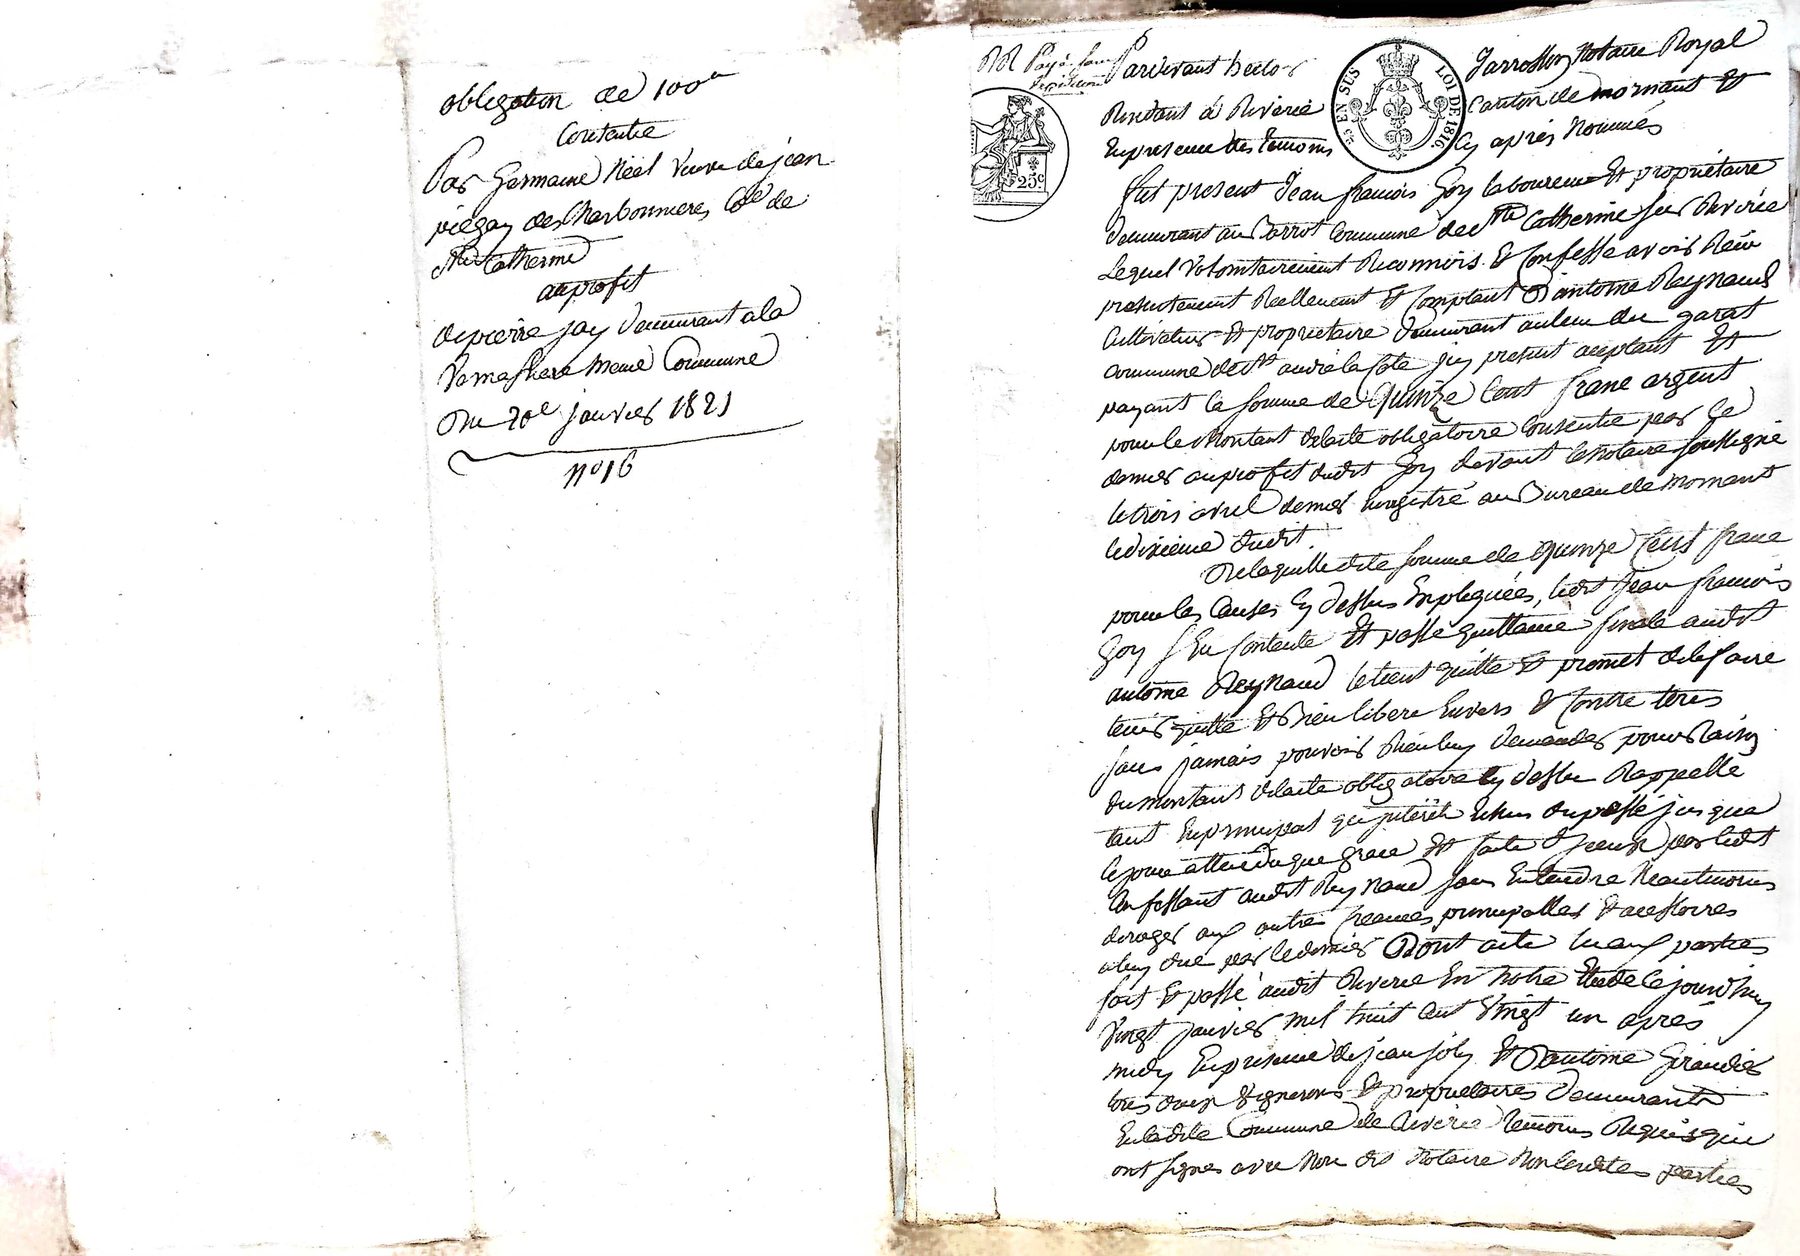 obligation de 100 u
Consentie
Par Germaine Néel Veuve de jean
piégay des Charbonnieres, Cne de
Ste Catherine
au profit
de pierre jay demeurant a la
meme Commune
Du 20e janvier 1821
no 16
RR Payé
Pardevant hector Jarrosson Notaire Royal
Résidant à Riverie Canton de mornant Et
En presence des temoins Cy après Nommés
25c
EN SUS LOI DE 1816
fut présent Jean françois Goy laboureur Et propriétaire
demeurant au Barrot Commune de Ste Catherine sur Riverie
Lequel Volontairement Reconnois Et Confesse avoir Reçu
presentement Reellement Et Comptant D'antoine Reynaud
Cultivateur Et proprietaire demeurant au lieu du garat
commune de St andré la Cote jcy present acceptant Et
payant la somme de Quinze Cent franc argent
pour le Montant de l'acte obligatoire Consentie par Ce
dernier au profit dudit Goy devant le Notaire soussigné
le trois avril dernier Enregistré au Bureau de Mornant
le dixieme dudit
De laquelle dite somme de Quinze Cent franc
pour les Causes Cy dessus Expliquées, ledit Jean françois
Goy s'En Contente Et passe quittance finale audit
antoine Reynaud le tient quitte Et promet de le faire
tenir quitte Et Bien libere Envers Et Contre tous
sans jamais pouvoir Rien luy demander pour Raison
du montant de l'acte obligatoire Cy dessus Rappellé
tant En principal qu'jnterêts Echus du passé jusque
a ce jour attendu que grace Et faite d'jceux par ledit
Confessant audit Reynaud sans Entendre Neantmoins
deroger aux autres Creances principalles Et accessoires
a luy due par le dernier Dont acte lu aux parties
fait Et passé audit Riverie En Notre Etude Ce jourd'huy
Vingt janvier mil huit cent Vingt un après
midy En presence de jean joly Et D'antoine Giraudier
tous deux Vignerons Et proprietaires demeurants
En ladite Commune de Riverie temoins Requis qui
ont signés avec Nou dit Notaire Non lesdites parties